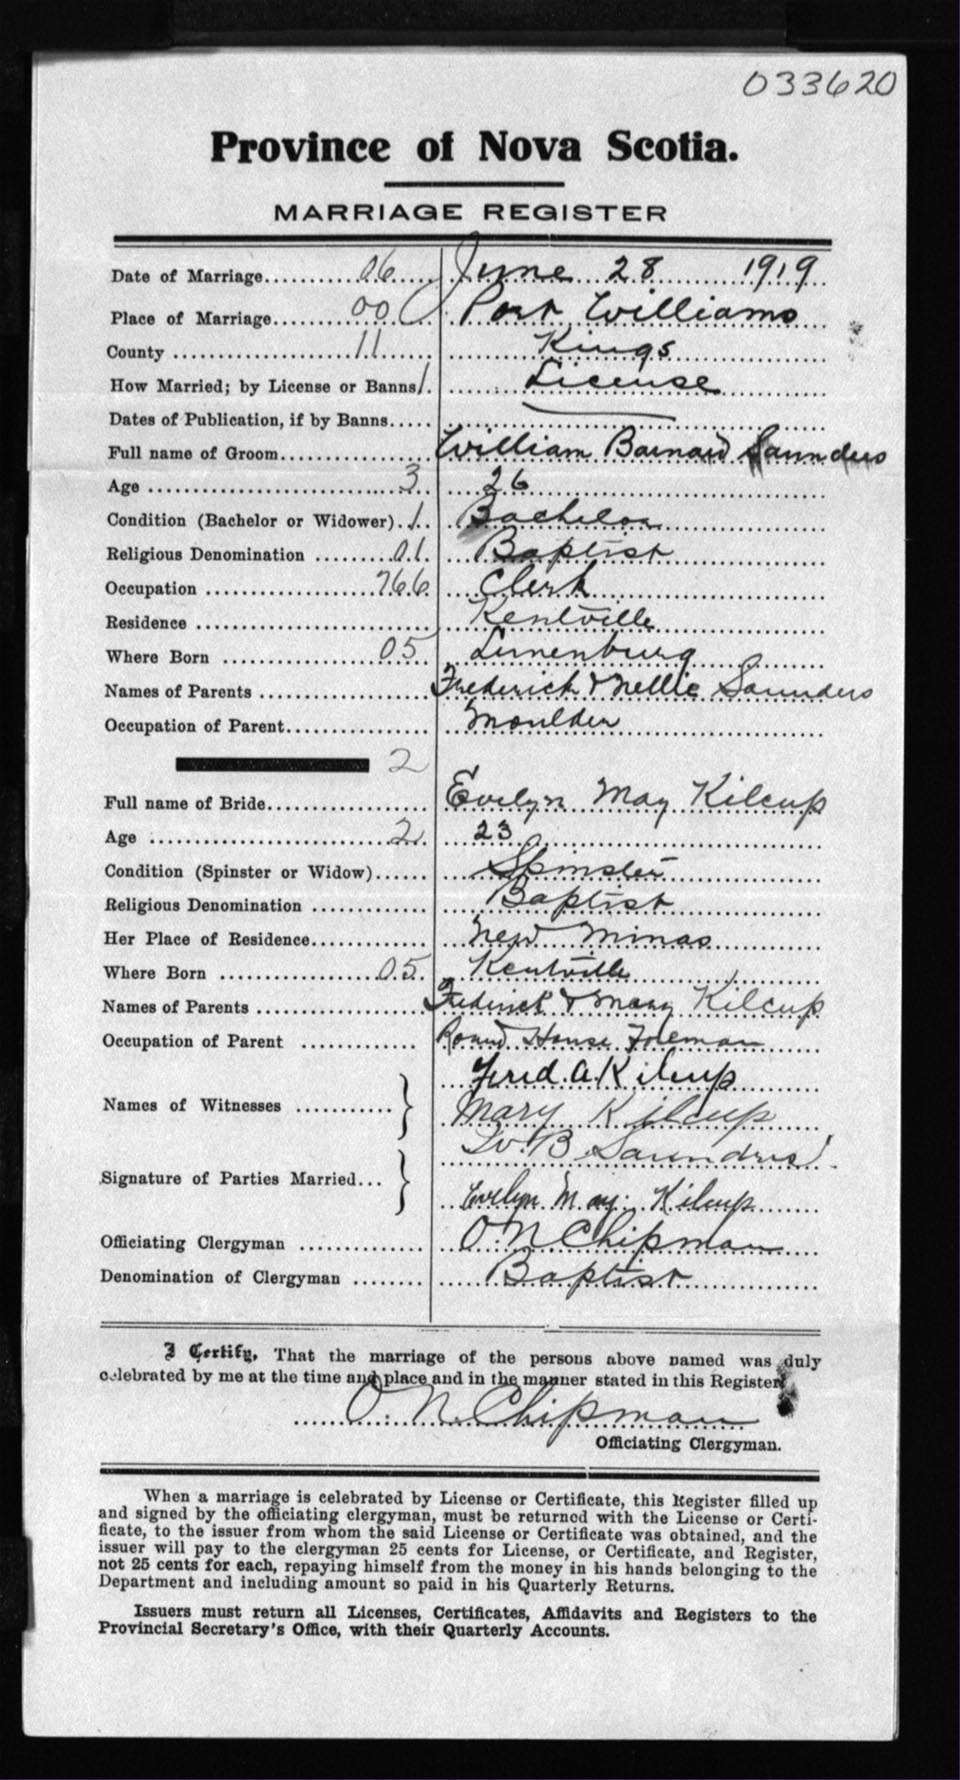 033620
Province of Nova Scotia.
MARRIAGE REGISTER
Date of Marriage............06..... June 28 1919
Place of Marriage............00 Port Williams
County ....................11...... Kings
How Married; by License or Banns 1. License
Dates of Publication, if by Banns.....
Full name of Groom................ William Barnard Saunders
Age ..........................3.. 26
Condition (Bachelor or Widower)..1. Bachelor
Religious Denomination ........01.. Baptist
Occupation ....................766. Clerk
Residence ........................ Kentville
Where Born ..................05.. Lunenburg
Names of Parents .................. Frederick & Nellie Saunders
Occupation of Parent................ Moulder
2
Full name of Bride................... Evelyn May Kilcup
Age ............................2.. 23
Condition (Spinster or Widow)...... Spinster
Religious Denomination ............. Baptist
Her Place of Residence.............. New Minas
Where Born ..................05.. Kentville
Names of Parents .................. Frederick & Mary Kilcup
Occupation of Parent ............. Round House Foreman
Fred. A Kilcup
Names of Witnesses ............ } Mary Kilcup
W. B. Saunders
Signature of Parties Married... }
Evelyn May. Kilcup
Officiating Clergyman ............. O N Chipman
Denomination of Clergyman ........ Baptist
I Certify, That the marriage of the persons above named was duly
celebrated by me at the time and place and in the manner stated in this Register
O. N. Chipman
Officiating Clergyman.
When a marriage is celebrated by License or Certificate, this Register filled up
and signed by the officiating clergyman, must be returned with the License or Certi-
ficate, to the issuer from whom the said License or Certificate was obtained, and the
issuer will pay to the clergyman 25 cents for License, or Certificate, and Register,
not 25 cents for each, repaying himself from the money in his hands belonging to the
Department and including amount so paid in his Quarterly Returns.
Issuers must return all Licenses, Certificates, Affidavits and Registers to the
Provincial Secretary's Office, with their Quarterly Accounts.